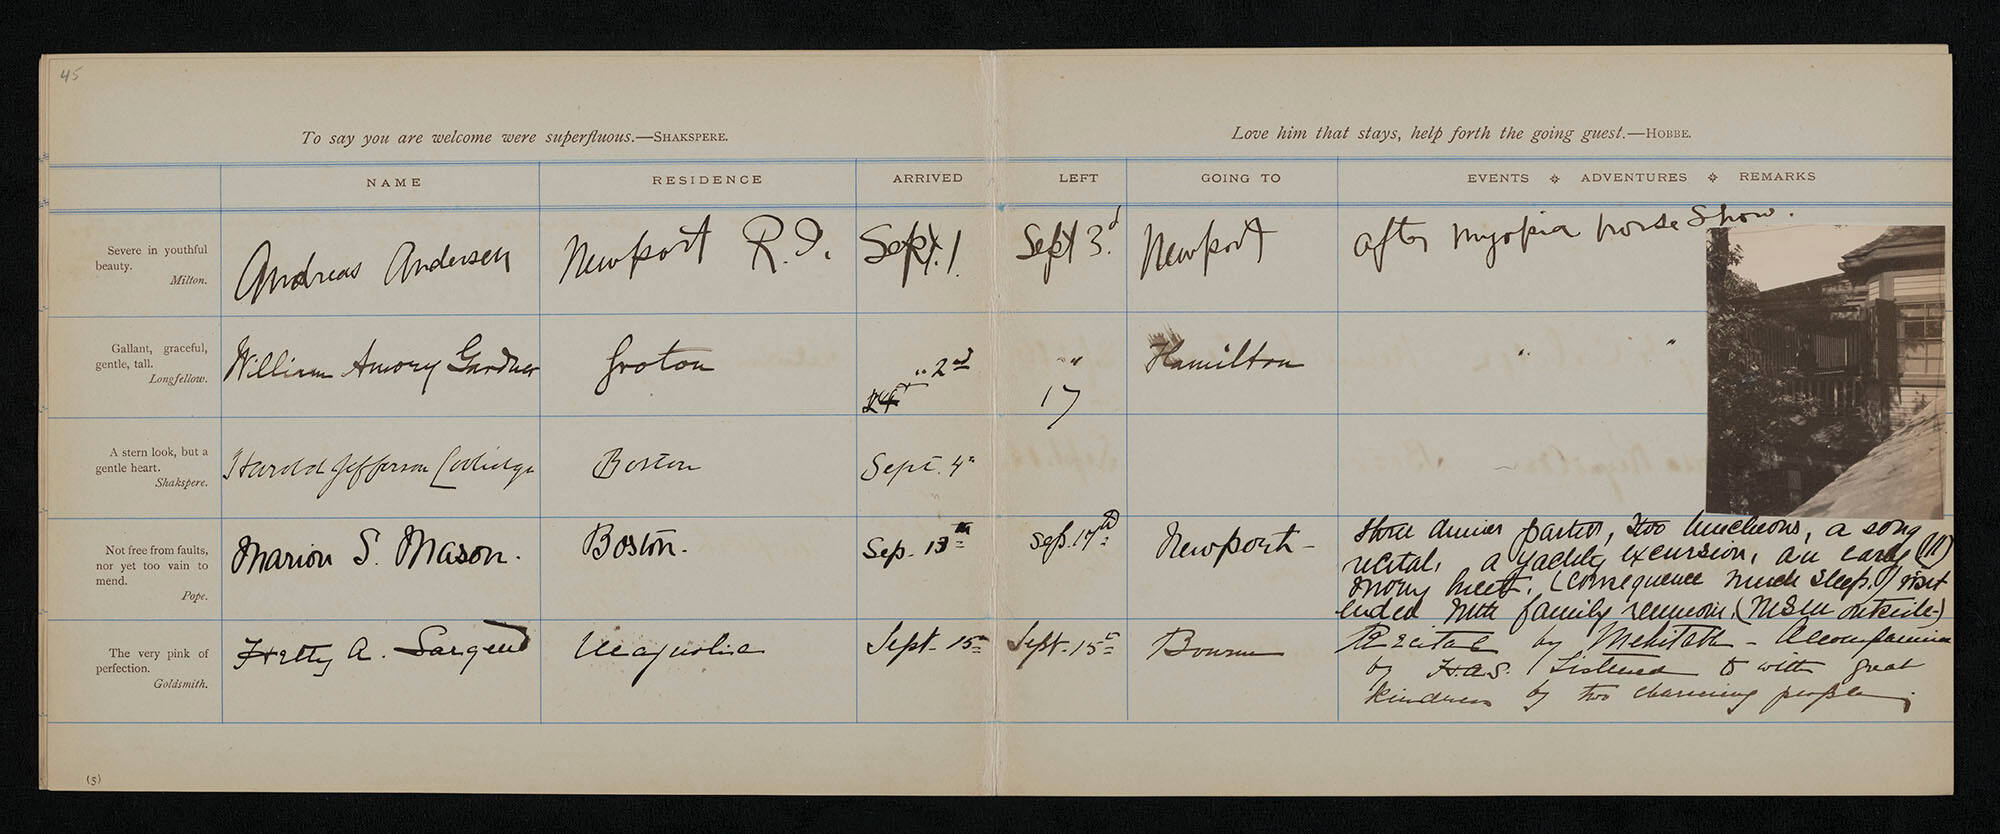 45
To say you are welcome were superfluous.—SHAKSPERE.
Love him that stays, help forth the going guest.—HOBBE.
NAME RESIDENCE ARRIVED LEFT GOING TO EVENTS ADVENTURES REMARKS
Severe in youthful
beauty.
Milton.
Andreas Andersen Newport R.I. Sept. 1. Sept 3d. Newport After Myopia horse show.
Gallant, graceful,
gentle, tall.
Longfellow.
William Amory Gardner Groton " 2d " Hamilton " "
17
A stern look, but a
gentle heart.
Shakspere.
Harold Jefferson Coolidge Boston Sept. 4th
Not free from faults,
nor yet too vain to
mend.
Pope.
Marion S. Mason. Boston. Sep. 13th Sep. 17th Newport—
Three dinner parties, two luncheons, a song
recital, a yachting excursion, an early (!!!)
morning meet, (consequence much sleep!) visit
ended with family reunion, (MSM outside—)
The very pink of
perfection.
Goldsmith.
Hetty A. Sargent Magnolia Sept. 15th Sept. 15th Bourne
Recital by — Accompanied
by H.A.S. Listened to with great
kindness by two charming people.
(5)